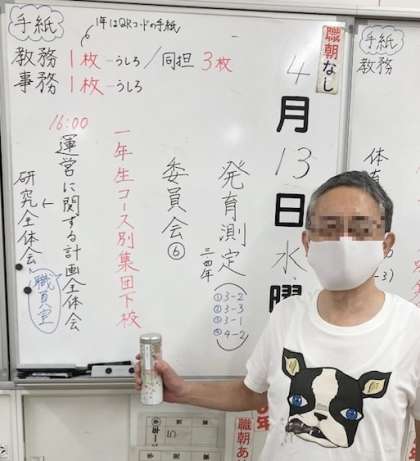 手紙
1年はQRコードの手紙
教務 1枚-うしろ/同担 3枚
事務 1枚-うしろ
職朝なし
4月13日水曜
発育測定 二・四年
①3-2
②3-3
③3-1
④4-2
委員会⑥
一年生コース別集団下校
16:00
運営に関する計画全体会
←
研究全体会
職員室
手紙
教務
職朝あ